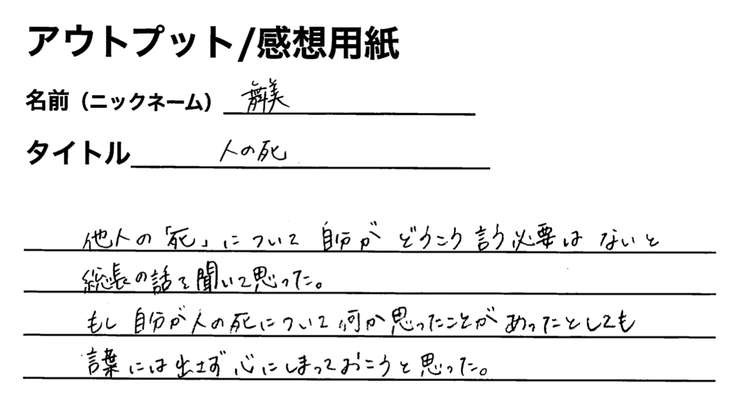 アウトプット/感想用紙
名前（ニックネーム） 舞美
タイトル 人の死
他人の「死」について自分がどうこう言う必要はないと
総長の話を聞いて思った。
もし自分が人の死について何か思ったことがあったとしても
言葉には出さず心にしまっておこうと思った。